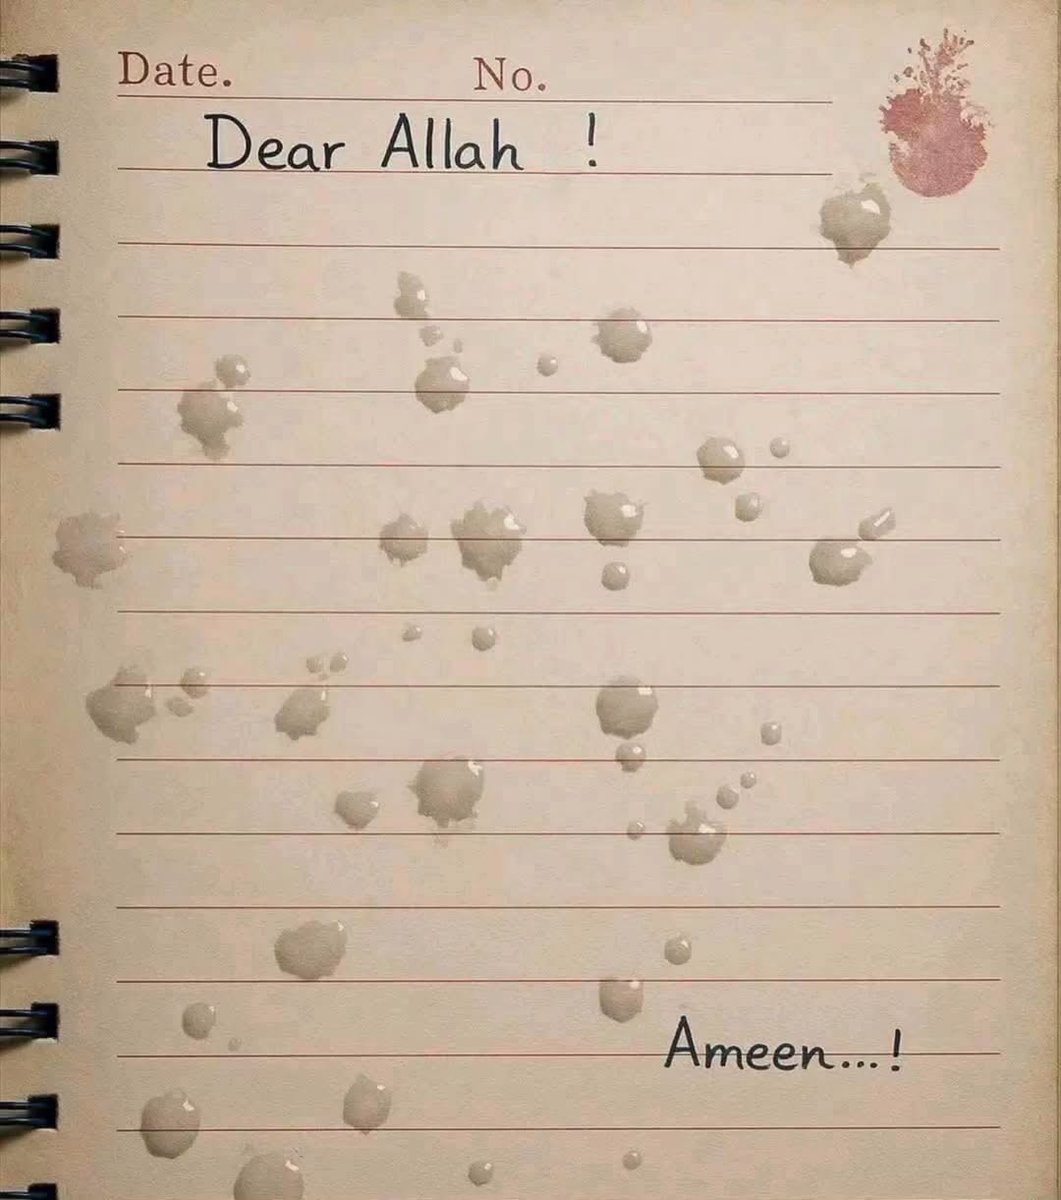 Date. No.
Dear Allah !
Ameen...!